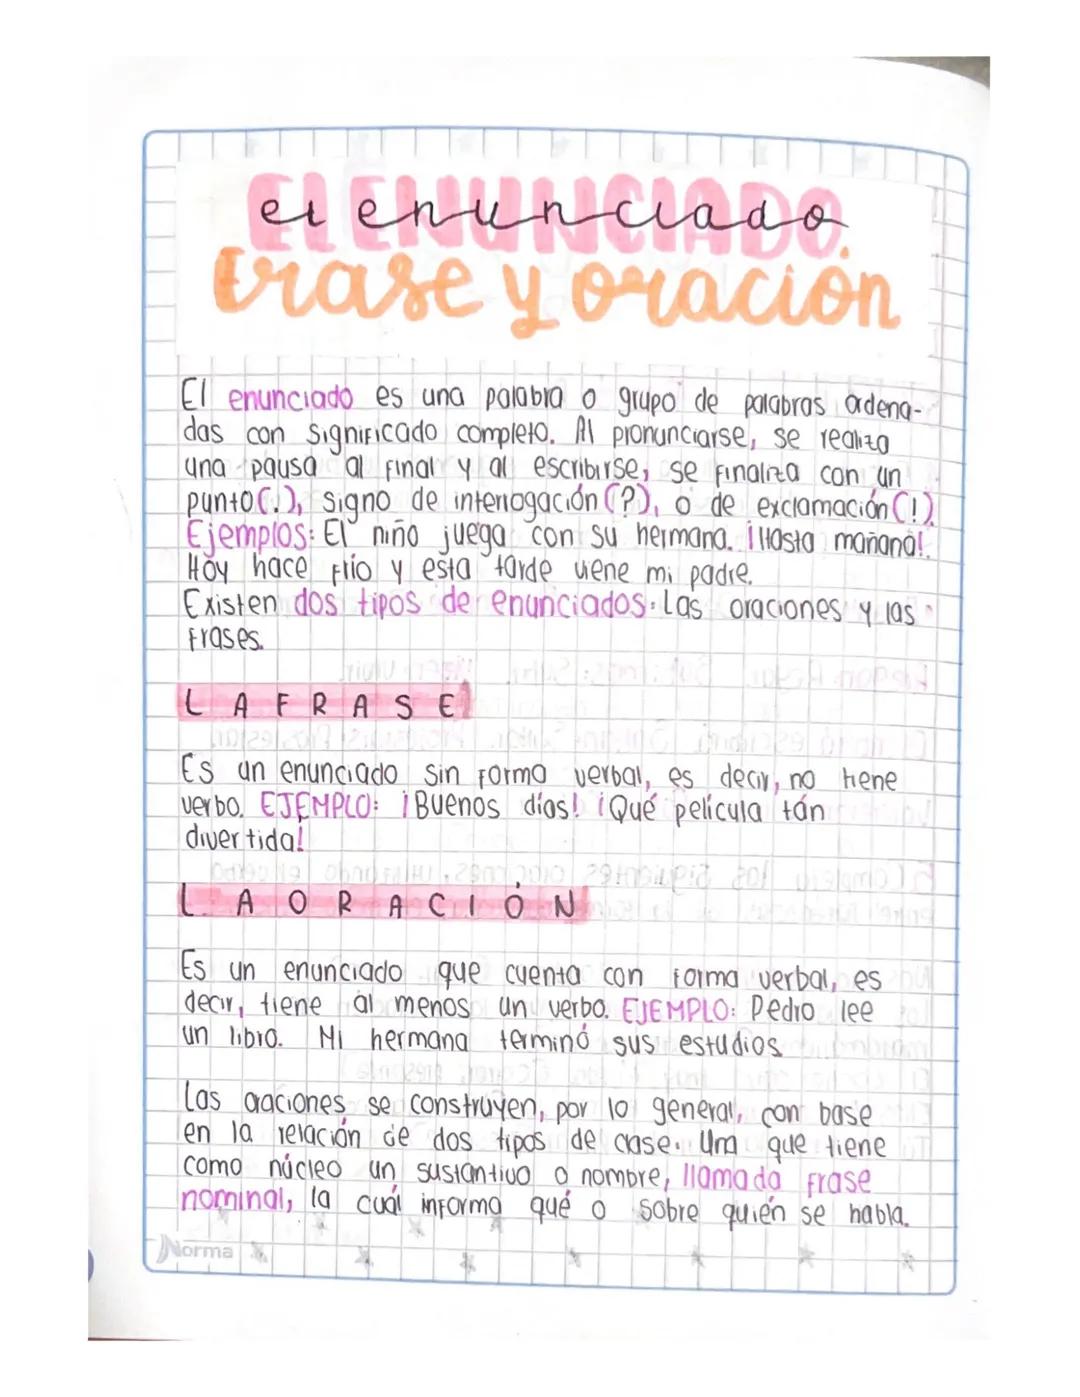 El ENUNCIADO.
el enunciado
Frase y oración
El enunciado es una palabra o grupo de palabras ordena-
das con significado completo. Al pronunciarse, se realiza
una pausa al final y al escribirse, se finaliza con un
punto (.), signo de interrogación (?), o de exclamación (!).
Ejemplos: El niño juega con su hermana. ¡Hasta mañana!.
Hoy hace frío y esta tarde viene mi padre.
Existen dos tipos de enunciados: Las oraciones y las
frases.
LA FRASE
Es un enunciado sin forma verbal, es decir, no tiene
verbo. EJEMPLO: ¡Buenos días! ¡Qué película tán
divertida!
LA ORACIÓN
Es un enunciado que cuenta con forma verbal, es
decir, tiene al menos un verbo. EJEMPLO: Pedro lee
un libro. Mi hermana terminó sus estudios
Las oraciones se construyen, por lo general, con base
en la relación de dos tipos de clase. Una que tiene
como núcleo un sustantivo o nombre, llamada frase
nominal, la cuál informa qué o sobre quién se habla.
Norma